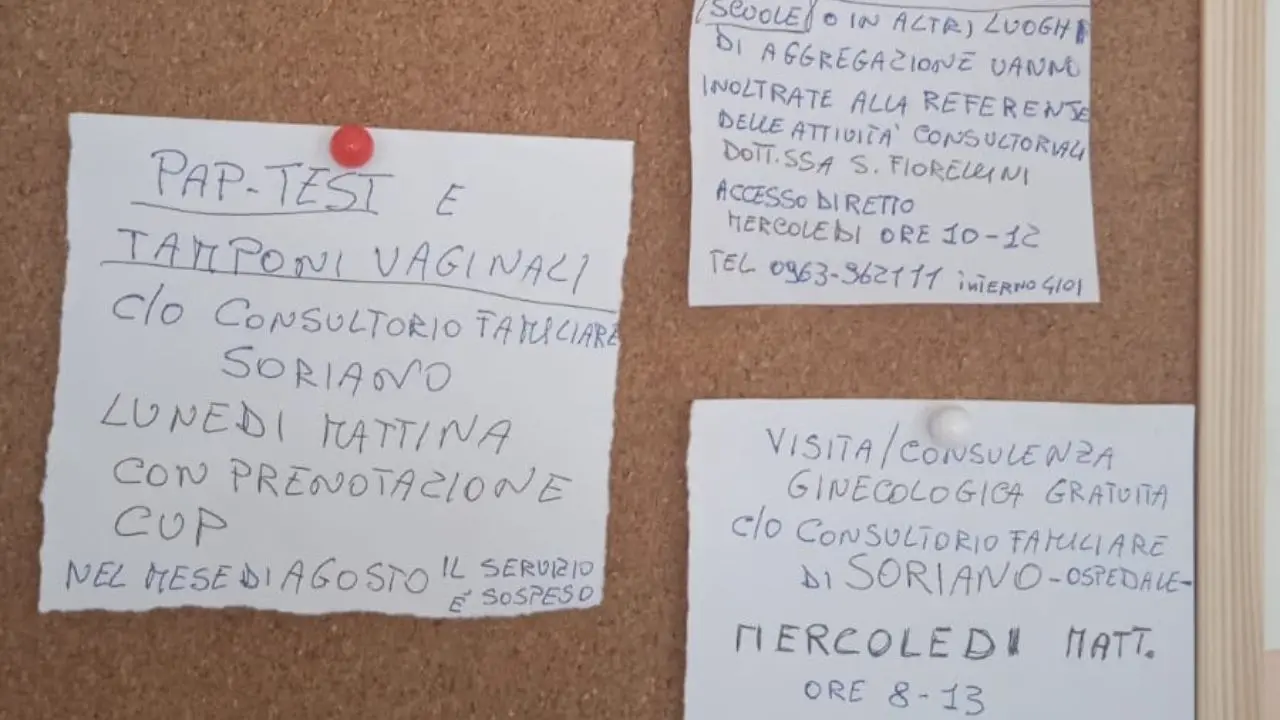 PAP-TEST E
TAMPONI VAGINALI
c/o CONSULTORIO FAMILIARE
SORIANO
LUNEDI MATTINA
CON PRENOTAZIONE
CUP
NEL MESE DI AGOSTO IL SERVIZIO
E' SOSPESO
SCUOLE O IN ALTRI LUOGHI
DI AGGREGAZIONE VANNO
INOLTRATE ALLA REFERENTE
DELLE ATTIVITA' CONSULTORIALI
DOTT.SSA S. FIORELLINI
ACCESSO DIRETTO
MERCOLEDI ORE 10-12
TEL 0963-962111 INTERNO 4101
VISITA/CONSULENZA
GINECOLOGICA GRATUITA
c/o CONSULTORIO FAMILIARE
DI SORIANO-OSPEDALE-
MERCOLEDI MATT.
ORE 8-13